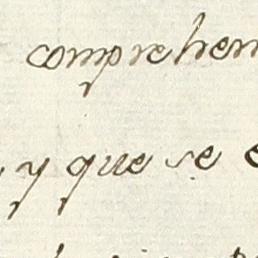 comprehen
y que se